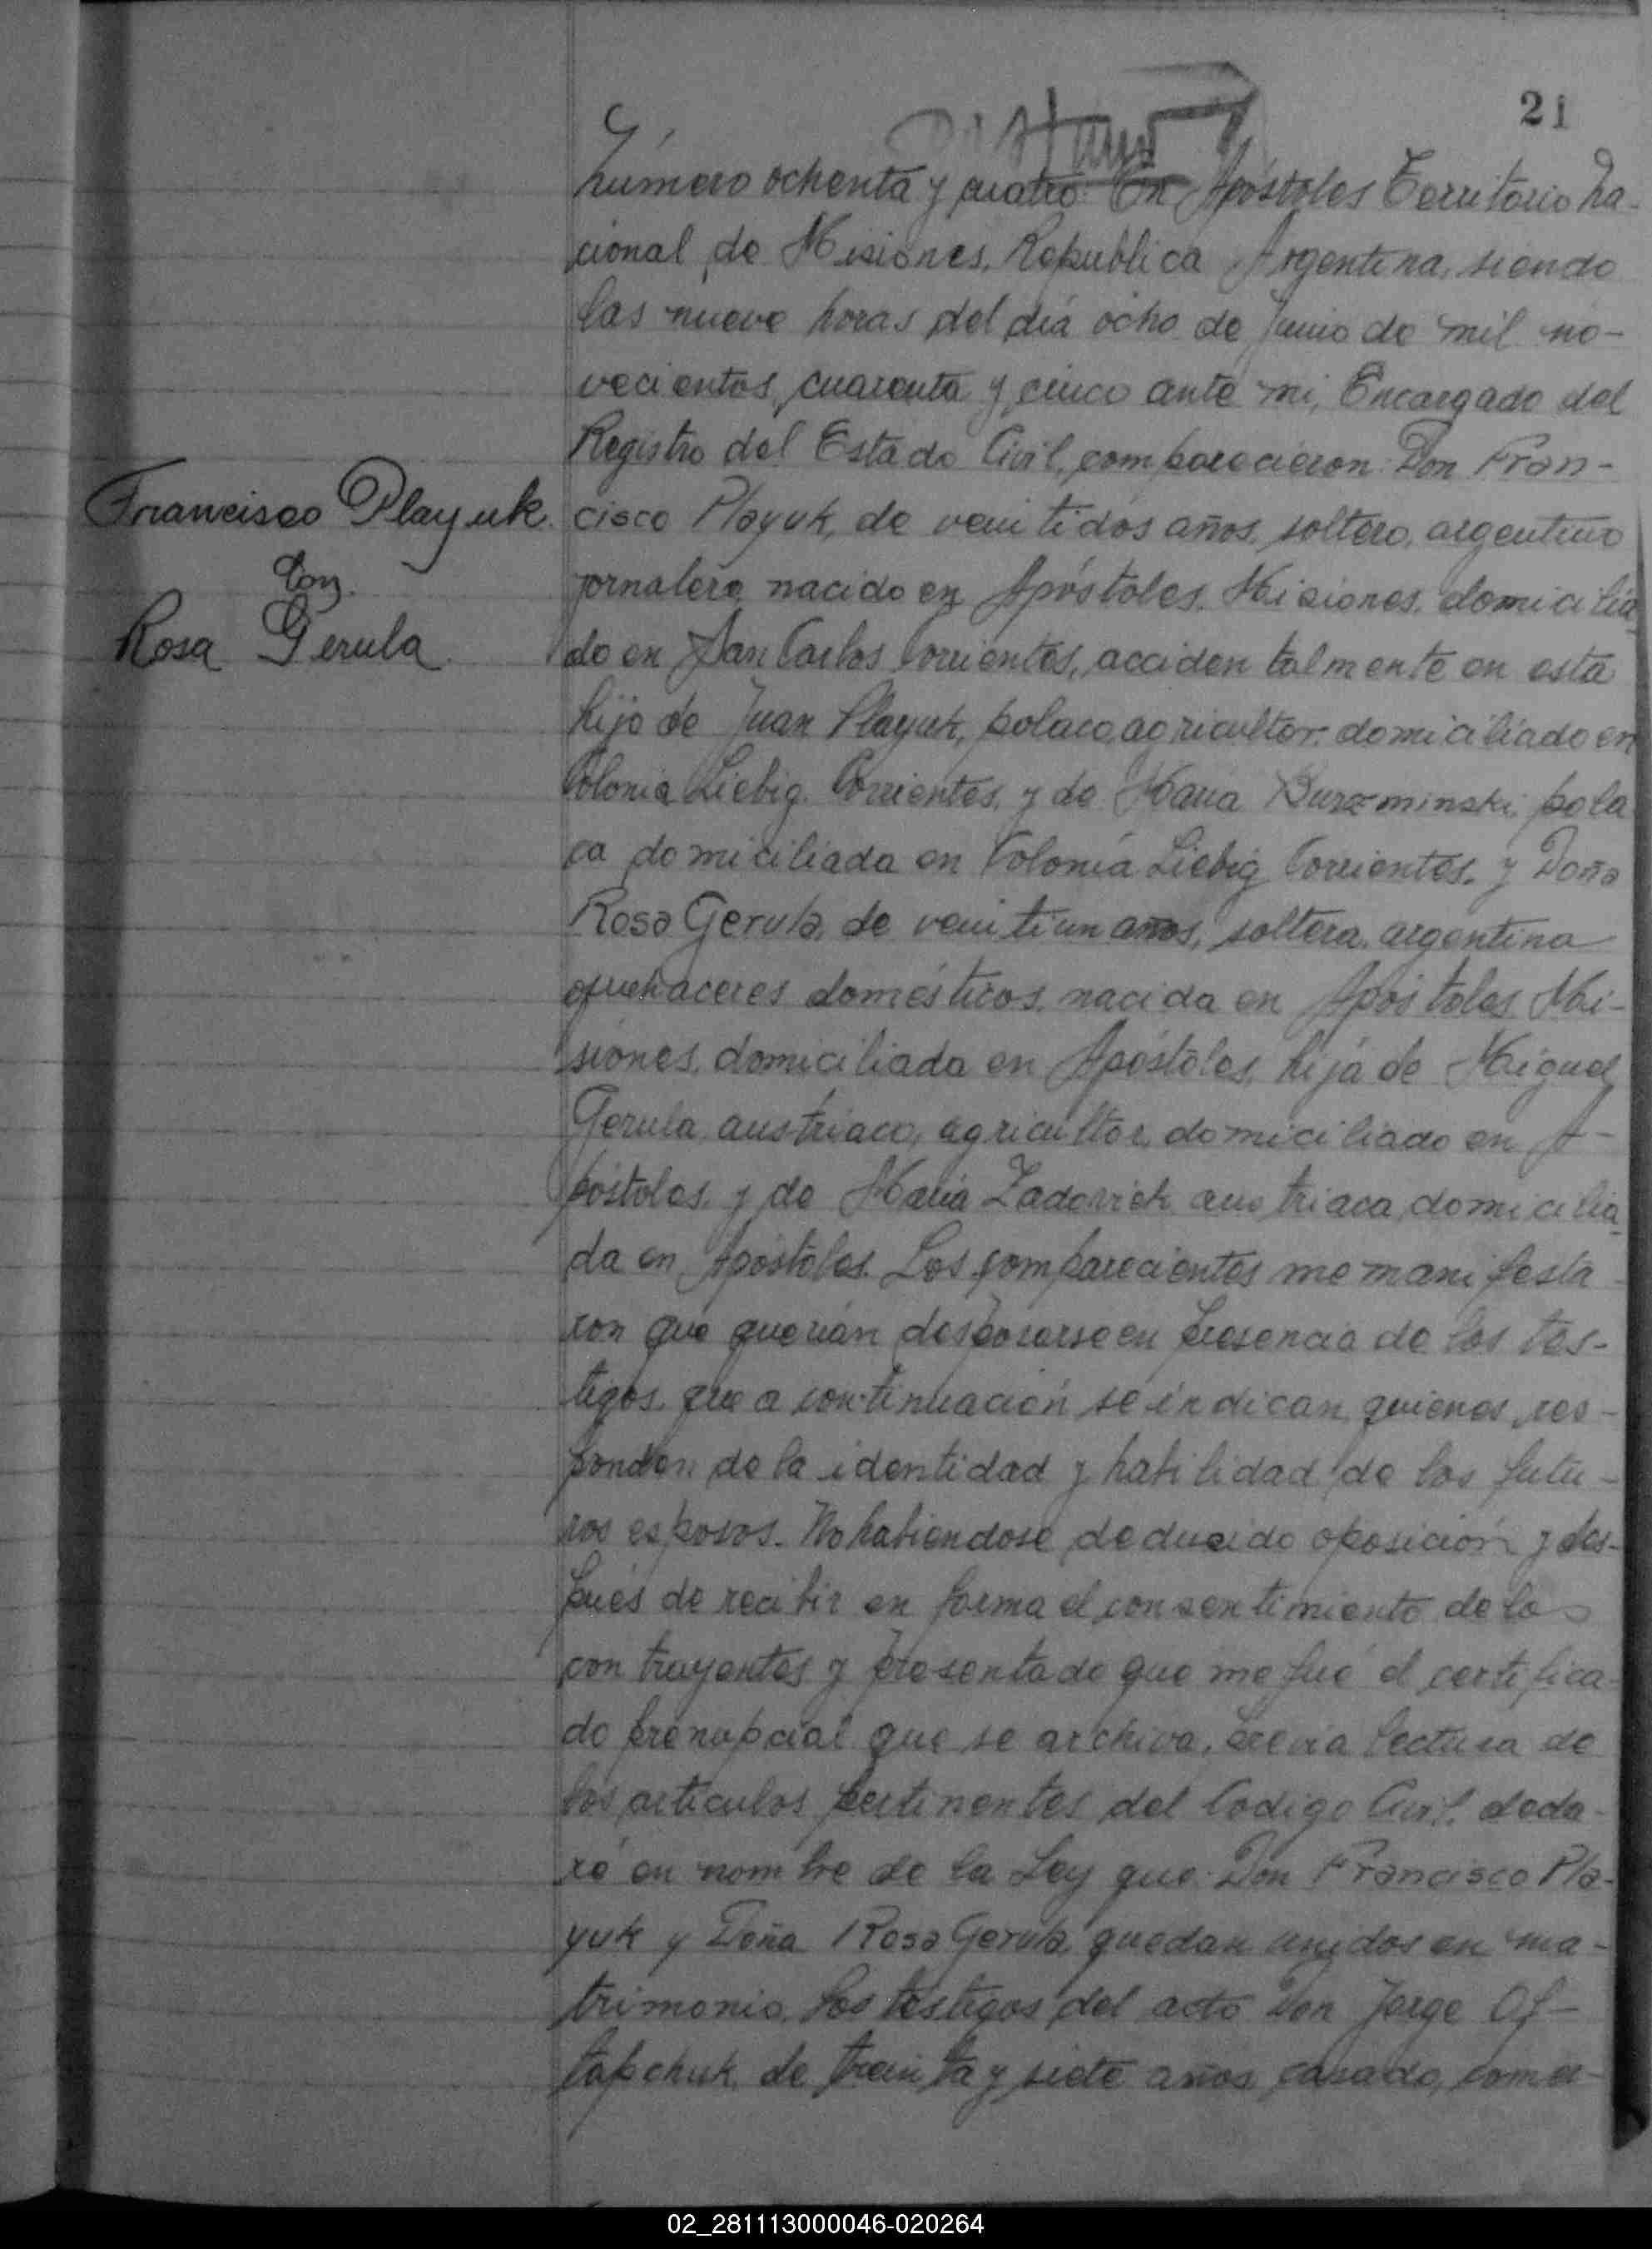 21
Número ochenta y cuatro: En Apóstoles Territorio Na-
cional de Misiones, Republica Argentina, siendo
las nueve horas del día ocho de Junio de mil no-
vecientos cuarenta y cinco ante mi, Encargado del
Registro del Estado Civil, comparecieron: Don Fran-
Francisco Playuk
con
Rosa Gerula
cisco Playuk, de veintidós años, soltero, argentino
jornalero, nacido en Apóstoles, Misiones, domicilia-
do en San Carlos Corrientes, accidentalmente en esta
hijo de Juan Playuk, polaco, agricultor, domiciliado en
Colonia Liebig. Corrientes, y de María Burzminski, pola
ca domiciliada en Colonia Liebig Corrientes. y Doña
Rosa Gerula, de veintiun años, soltera, argentina
quehaceres domésticos, nacida en Apóstoles Mi-
siones, domiciliada en Apóstoles, hija de Miguel
Gerula, austriaco, agricultor, domiciliado en A-
póstoles, y de María Zadorick austriaca, domicilia
da en Apóstoles. Los comparecientes me manifesta
ron que querían desposarse en presencia de los tes-
tigos que a continuación se indican, quienes res-
ponden de la identidad y habilidad de los futu-
ros esposos. No habiendose deducido oposición y des-
pués de recibir en forma el consentimiento de los
contrayentes y presentado que me fué el certifica-
do prenupcial que se archiva, previa lectura de
los artículos pertinentes del Codigo Civil, decla-
ré en nombre de la Ley que: Don Francisco Pla-
yuk y Doña Rosa Gerula, quedan unidos en ma-
trimonio. Los testigos del acto Don Jorge Of-
tapchuk, de treinta y siete años, casado, comer-
02_281113000046-020264